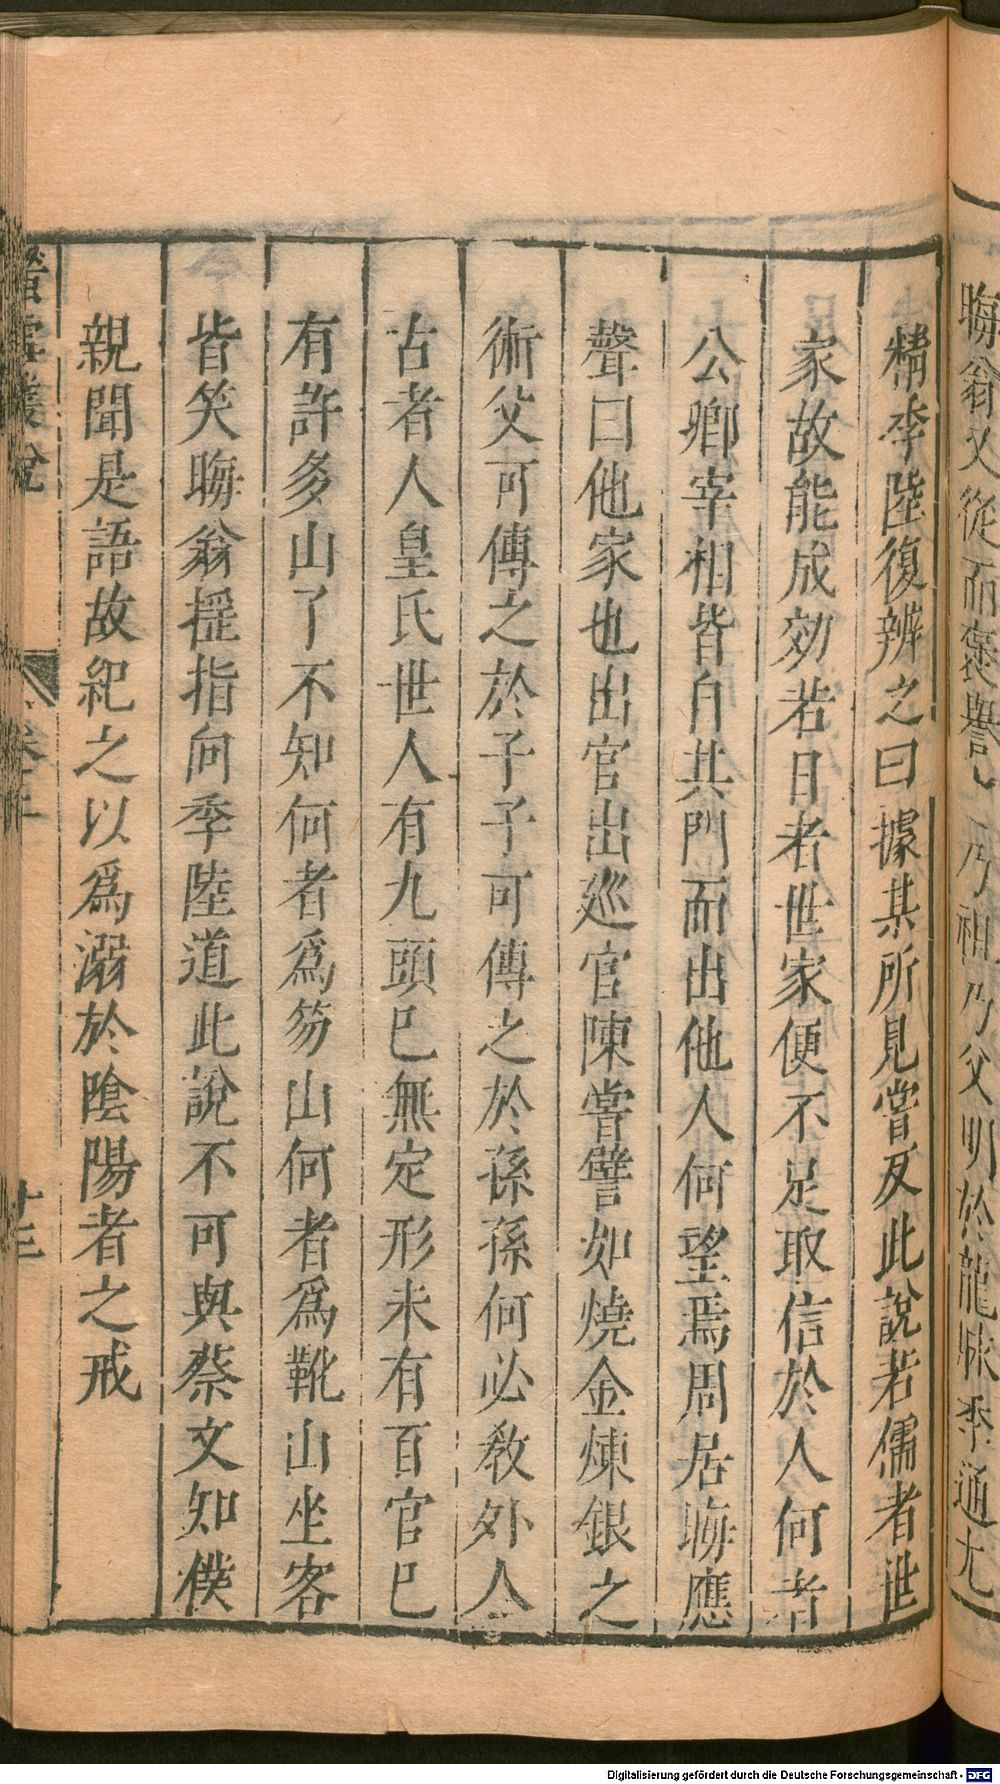 晦翁又從而褒譽乃祖乃父明於龍脉季通尤
精李陸復辨之曰據某所見嘗反此說若儒者世
家故能成効若日者世家便不足取信於人何者
公卿宰相皆自其門而出他人何望焉周居晦應
聲曰他家也出官出巡官陳嘗譬如燒金煉銀之
術父可傳之於子子可傳之於孫孫何必敎外人
古者人皇氏世人有九頭已無定形未有百官已
有許多山了不知何者爲笏山何者爲靴山坐客
皆笑晦翁揺指向季陸道此說不可與蔡文知僕
親聞是語故紀之以爲溺於陰陽者之戒
螢雪叢說
十三
Digitalisierung gefördert durch die Deutsche Forschungsgemeinschaft - DFG